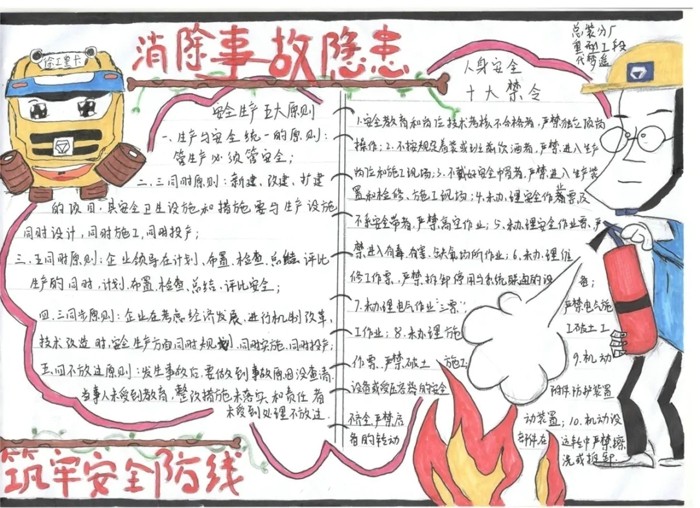 消除事故隐患
总装分厂
重型工段
代梦遥
徐工重卡
安全生产五大原则
一、生产与安全统一的原则：
管生产必须管安全；
二、三同时原则：新建、改建、扩建
的项目，其安全卫生设施和措施要与生产设施
同时设计，同时施工，同时投产；
三、五同时原则：企业领导在计划、布置、检查、总结、评比
生产的同时，计划、布置、检查、总结、评比安全；
四、三同步原则：企业在考虑经济发展、进行机制改革，
技术改造时，安全生产方面同时规划，同时实施，同时投产；
五、四不放过原则：发生事故后，要做到事故原因没查清，
当事人未受到教育，整改措施未落实和责任者
未受到处理不放过．
人身安全
十大禁令
1.安全教育和岗位技术考核不合格者，严禁独立顶岗
操作；2.不按规定着装或班前饮酒者，严禁进入生产
岗位和施工现场；3.不戴好安全帽者，严禁进入生产装
置和检修、施工现场；4.未办理安全作业票及
不系安全带者，严禁高空作业；5.未办理安全作业票，严
禁进入有毒、有害、缺氧场所作业；6.未办理维
修工作票，严禁拆卸停用与系统联通的设
备；
7.未办理电气作业“三票”
严禁电气施
工作业；8.未办理施
工破土工
作票，严禁破土施工
9.机动
设备或受压容器的安全
附件、防护装置
不齐全严禁启
动装置；10.机动设
备的转动
部件，在
运转中严禁擦
洗或拆卸．
筑牢安全防线